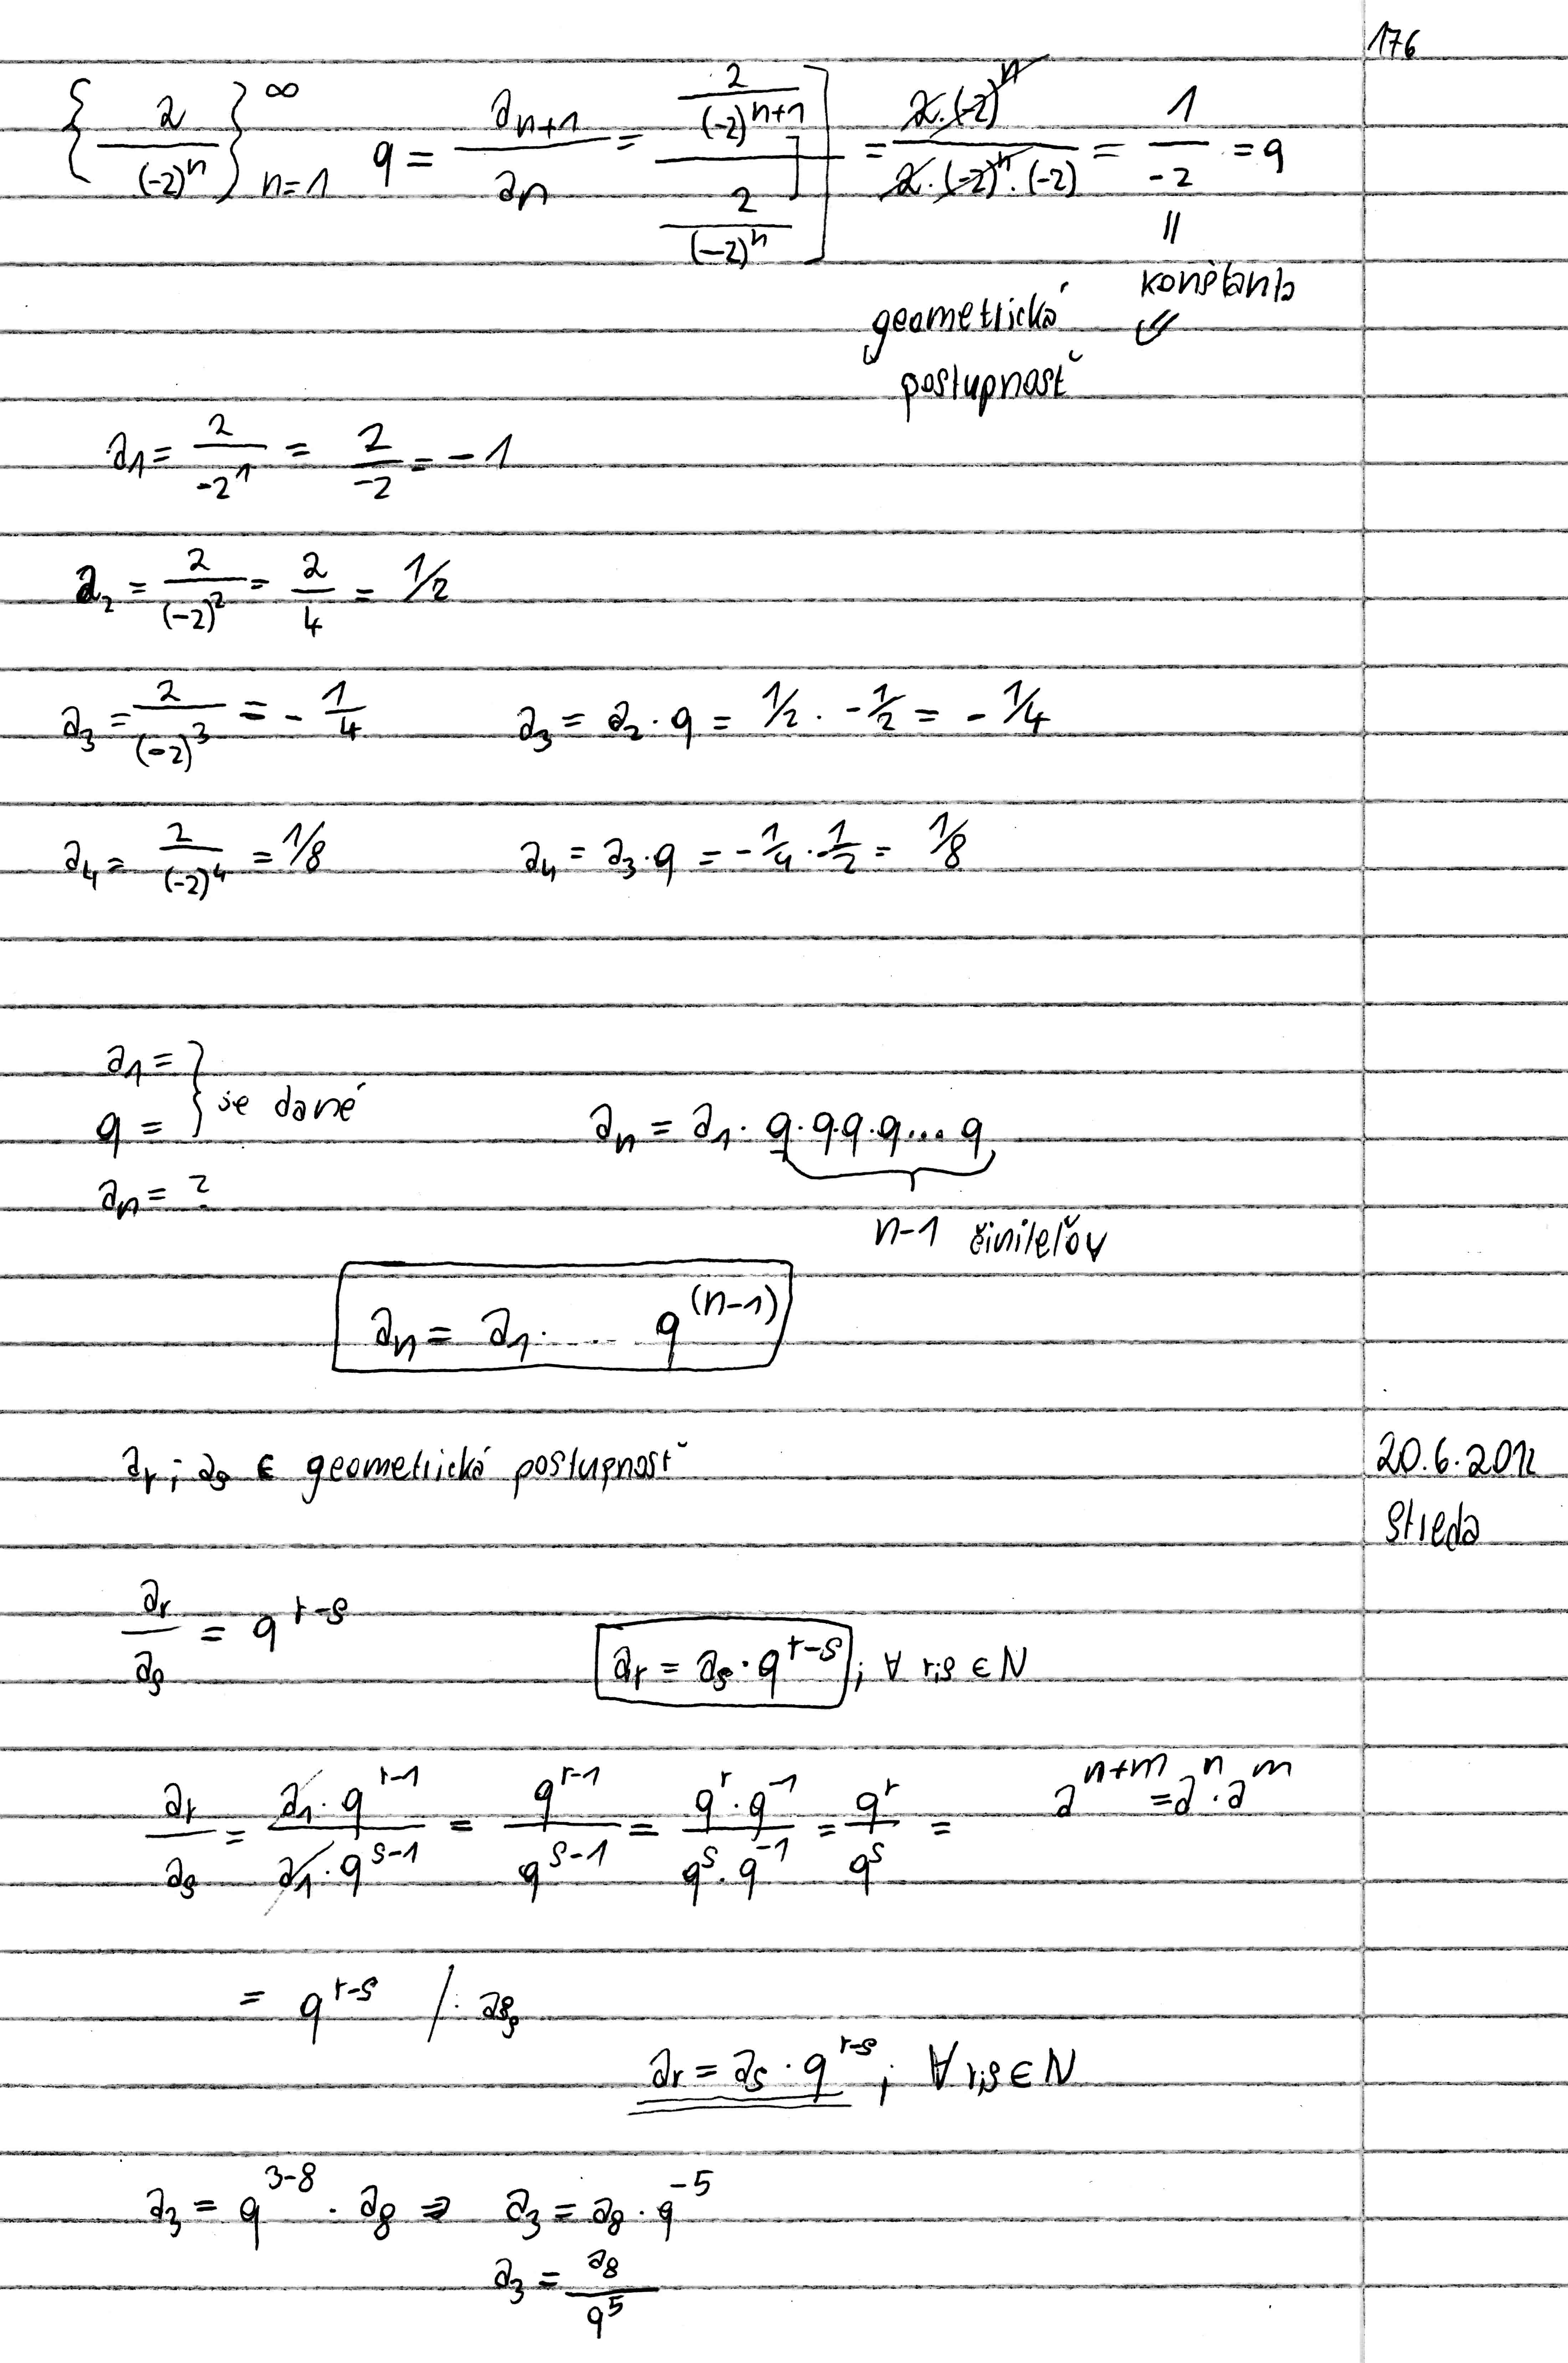 176
{2/(-2)^n}_{n=1}^∞ q = a_{n+1}/a_n = (2/(-2)^{n+1})/(2/(-2)^n) = 2·(-2)^n/(2·(-2)^n·(-2)) = 1/-2 = q
=
konštanta
geometrická ⇙
postupnosť
a_1 = 2/-2^1 = 2/-2 = -1
a_2 = 2/(-2)^2 = 2/4 = 1/2
a_3 = 2/(-2)^3 = -1/4 a_3 = a_2·q = 1/2 · -1/2 = -1/4
a_4 = 2/(-2)^4 = 1/8 a_4 = a_3·q = -1/4 · -1/2 = 1/8
a_1 =
q = } je dané
a_n = a_1 · q·q·q·q...q
a_n = ?
n-1 činiteľov
a_n = a_1 · .... q^{(n-1)}
a_r ; a_s ∈ geometrická postupnosť
20.6.2012
Streda
a_r/a_s = q^{r-s}
a_r = a_s · q^{r-s} ; ∀ r;s ∈ N
a_r/a_s = a_1·q^{r-1}/(a_1·q^{s-1}) = q^{r-1}/q^{s-1} = q^r·q^{-1}/(q^s·q^{-1}) = q^r/q^s = a^{n+m} = a^n·a^m
= q^{r-s} /· a_s
a_r = a_s · q^{r-s} ; ∀ r;s ∈ N
a_3 = q^{3-8} · a_8 ⇒ a_3 = a_8 · q^{-5}
a_3 = a_8/q^5